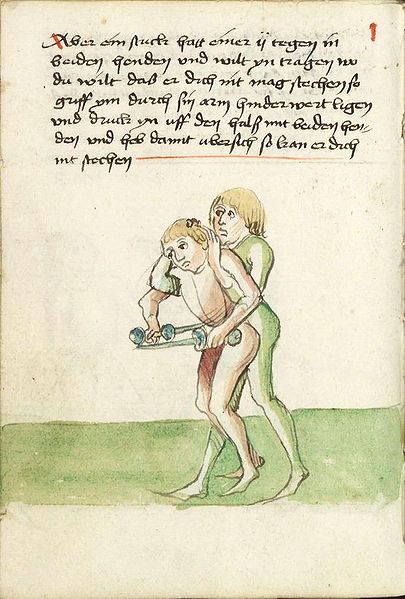 Aber ein stuck hatt einer ij tegen in
beiden henden und wilt yn tragen wo
du wilt das er dich nit mag stechen so
griff ym durch sin arm hinderwert ligen
und druck yn uff den halß mit beiden hen-
den und heb damit ubersich so kan er dich
nit stechen